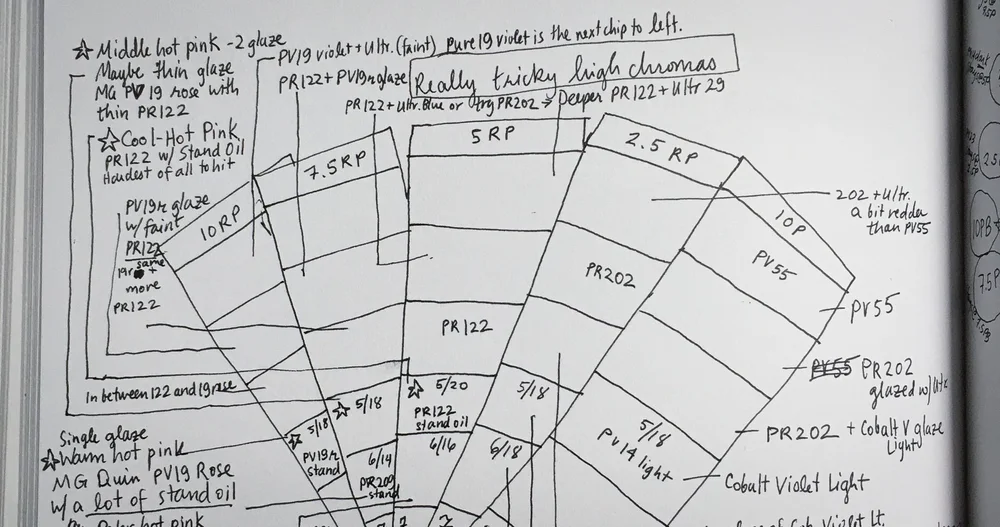 ☆ Middle hot pink - 2 glaze
Maybe thin glaze
MG PV 19 rose with
thin PR122
PV19 violet + Ultr. (faint) pure 19 violet is the next chip to left.
PR122 + PV19r glaze
Really tricky high chromas
PR122 + Ultr. Blue or try PR202 → Deeper PR122 + Ultr 29
☆ Cool-Hot Pink
PR122 w/ Stand Oil
Hardest of all to hit
PV19r glaze
w/ faint
PR122
same
19r +
more
PR122
10RP
7.5 RP
5 RP
2.5 RP
10P
202 + Ultr.
a bit redder
than PV55
PV55
PR202
PR122
PV55
PV55 PR202
glazed w/ Ultr
PR202 + Cobalt V glaze
Light
Cobalt Violet Light
In between 122 and 19 rose
☆ 5/18
☆ 5/20
PR122
stand oil
5/18
5/18
PV14 light
☆ 5/18
PV19r
stand
6/14
PR209
stand
6/16
6/18
Single glaze
☆ Warm hot pink
MG Quin PV19 Rose
w/ a lot of stand oil
hot pink
Violet Lt.
2.5
10PB
7.5P